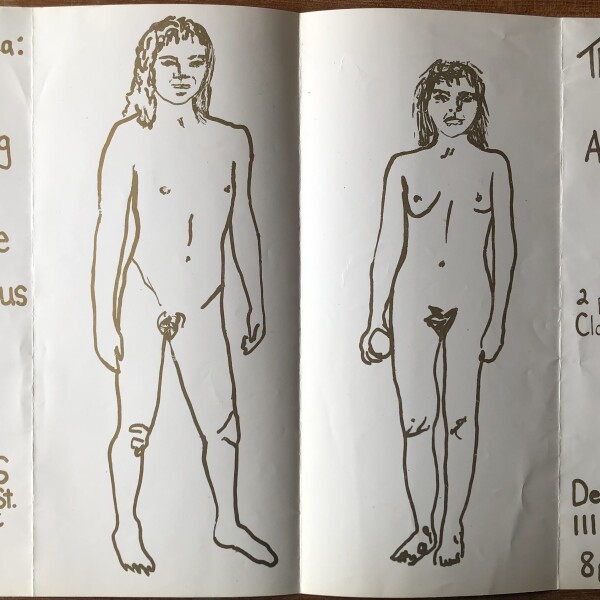 a:
g
e
us
S
St.
Th
A
2 p
Clo
De
111
8p